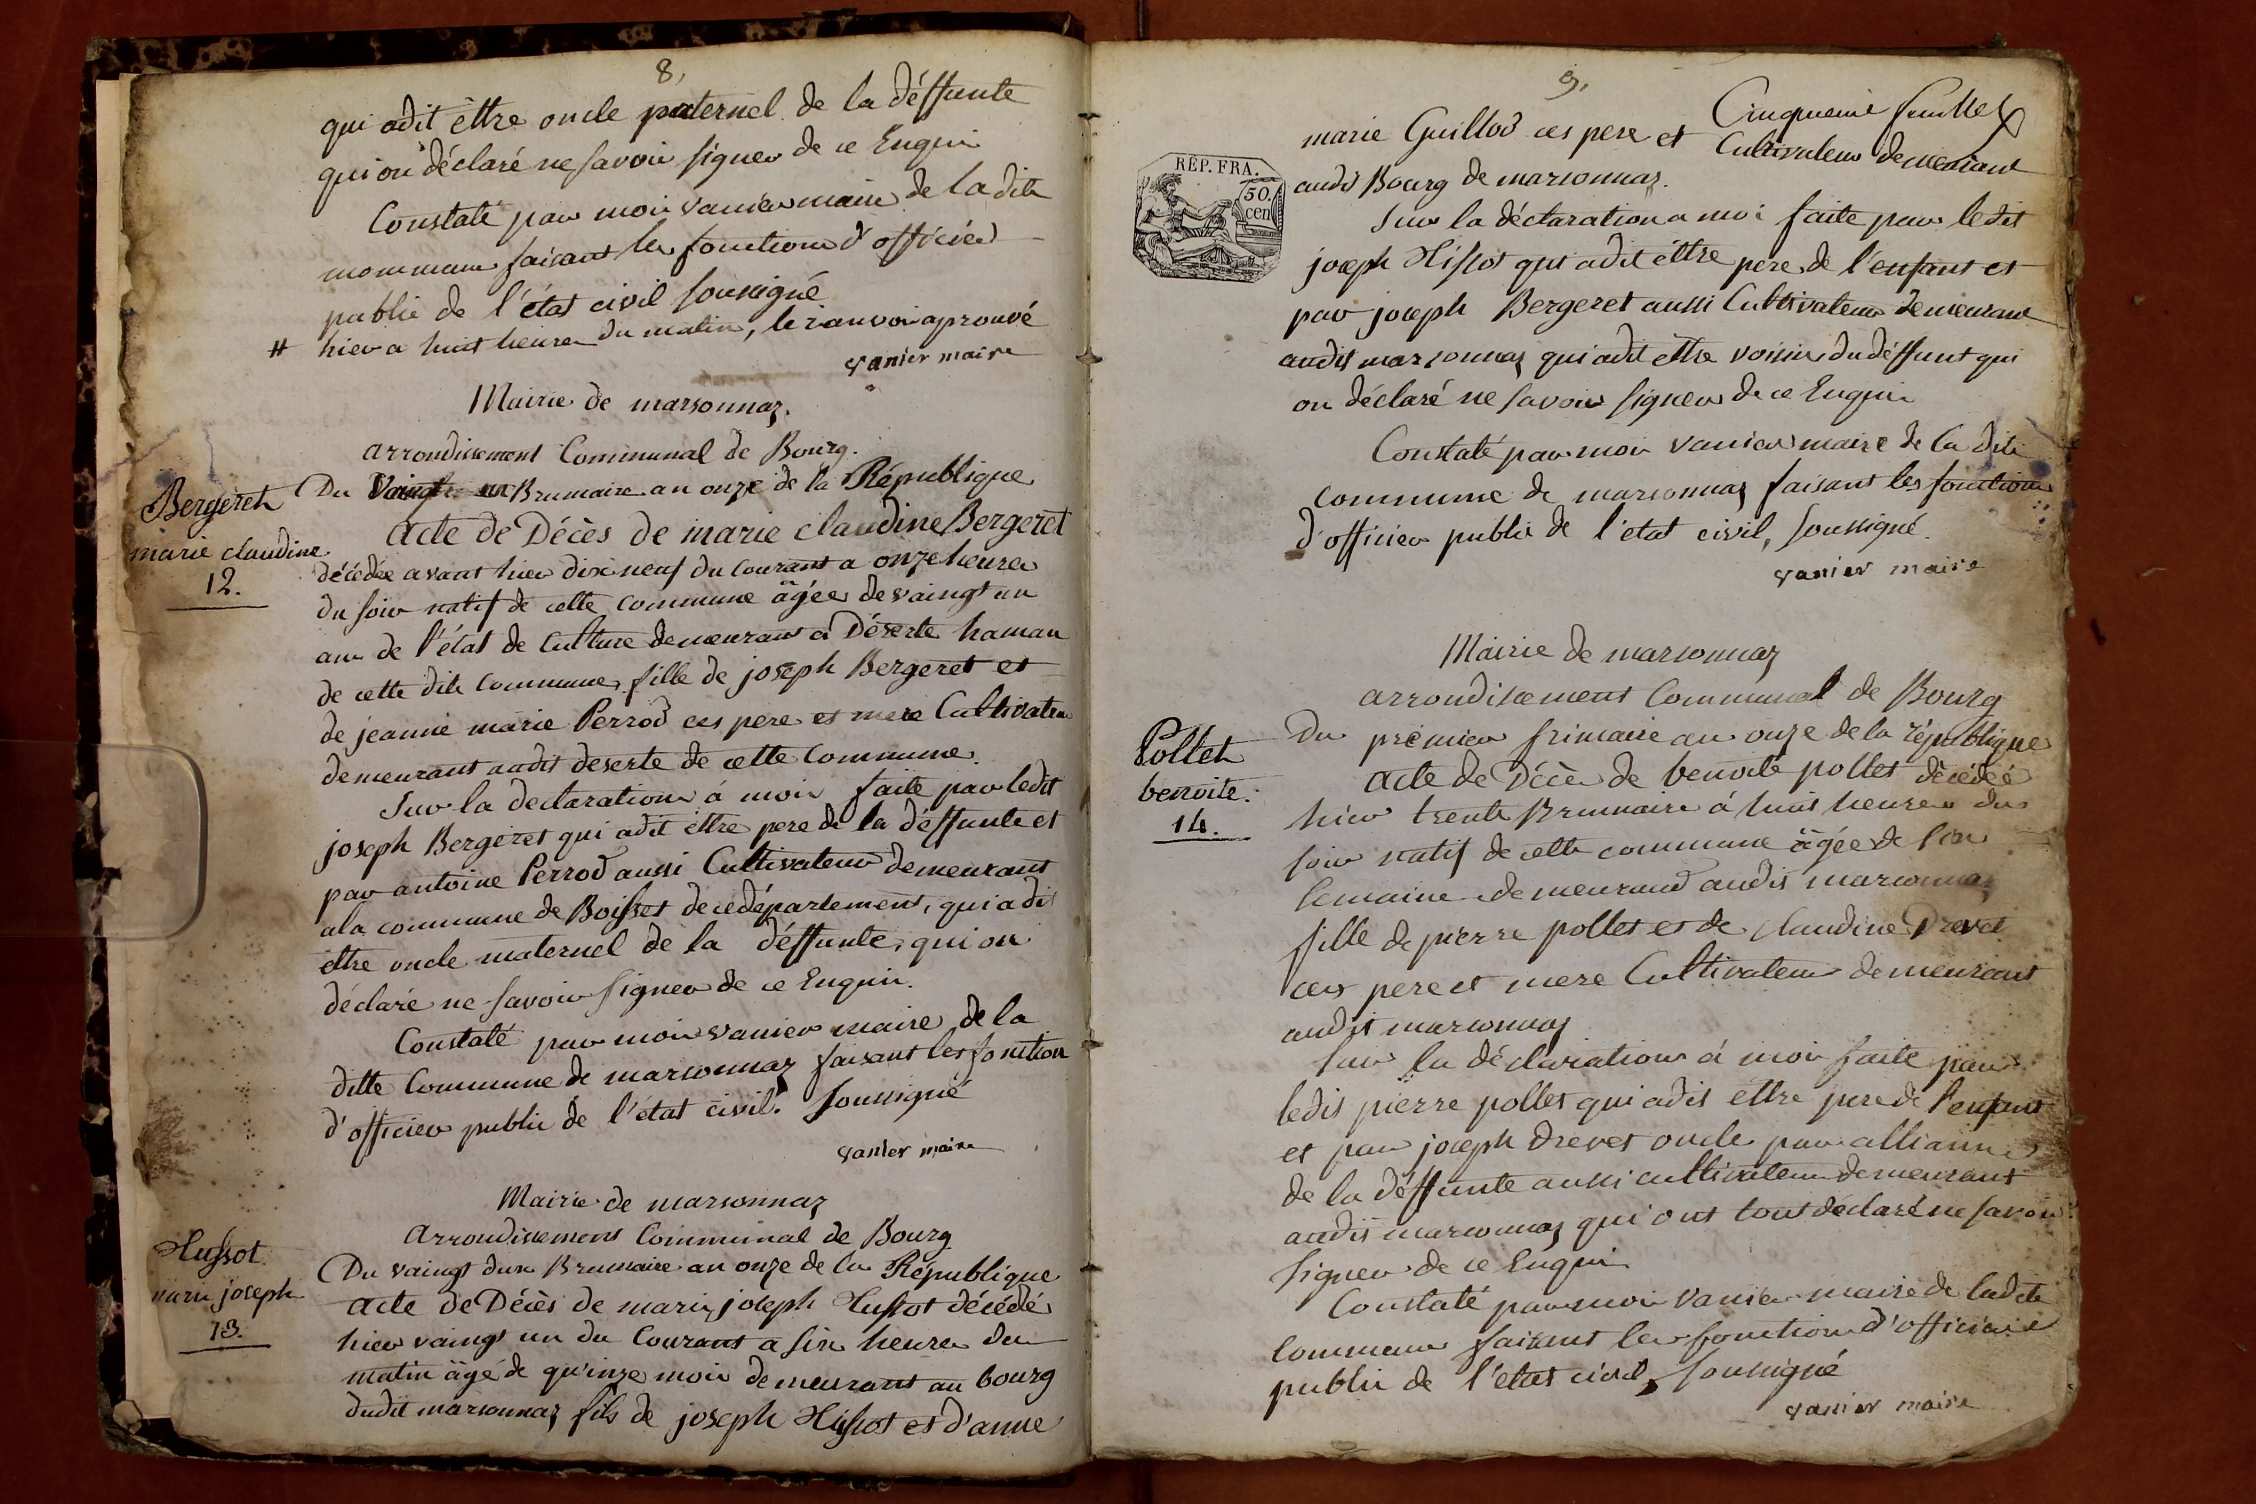 8,
qui adit èttre oncle paternel de la déffunte
qui on déclaré ne savoir signer de ce Enquis
Constaté par moi vanier maire de la dite
commune faisant les fonctions d'officier
public de l'état civil soussigné
# hier a huit heures du matin, le ranvoi aprouvé
vanier maire
Mairie de marsonnaz.
arrondissement Communal de Bourg.
Bergeret
marie claudine
12.
Du vaingt un Brumaire an onze de la République
acte de Décès de marie claudine Bergeret
décédée avant hier dix neuf du courant a onze heures
du soir natif de cette commune âgée de vaingt un
ans de l'état de culture demeurant à Déserte hamau
de cette dite commune, fille de joseph Bergeret et
de jeanne marie Perrod ces pere et mere Cultivateur
demeurant audit deserte de cette commune.
Sur la declaration à moi faite par ledit
joseph Bergeret qui adit èttre pere de la déffunte et
par antoine Perrod aussi Cultivateur demeurant
ala commune de Boisset de ce département, qui a dit
èttre oncle maternel de la déffunte, qui on
déclaré ne savoir signer de ce Enquis.
Constaté par moi vanier maire de la
ditte Commune de marsonnaz faisant les fonction
d'officier public de l'état civil. soussigné
vanier maire
Mairie de marsonnaz
arrondissement Communal de Bourg
Hussot
marie joseph
13.
Du vaingt deux Brumaire an onze de la République
acte de Décès de marie joseph Hussot décédé
hier vaingt un du Courant a six heures du
matin âgé de qu'inze mois demeurant au bourg
dudit marsonnaz fils de joseph Hussot et d'anne
9.
Cinquieme feuillet
marie Guillod ces pere et Cultivateur demeurant
audit Bourg de marsonnaz.
RÉP. FRA.
50.
cen
Sur la déclaration a moi faite par ledit
joseph Hissot qui adit èttre pere de l'enfant et
par joseph Bergeret aussi Cultivateur demeurant
audit marsonnaz qui adit èttre voisin du déffunt qui
on déclaré ne savoir signer de ce Enquis
Constaté par moi vanier maire de la dite
commune de marsonnaz faisant les fonction
d'officier public de l'état civil, soussigné.
vanier maire
Mairie de marsonnaz
arrondissement Communal de Bourg
Pollet
benoite.
14.
Du premier frimaire an onze de la république
acte de Décès de benoite pollet décédeé
hier trente Brumaire à huit heures du
soir natif de cette commune âgée de six
semaine demeurand audit marsonnaz
fille de pierre pollet et de claudine Drevet
ces pere et mere Cultivateur demeurant
audit marsonnaz
Sur la déclaration à moi faite par
ledit pierre pollet qui adit èttre pere de l'enfant
et par joseph drevet oncle par alliance
de la déffunte aussi cultivateur demeurant
audit marsonnaz qui ont tout déclaré ne savoir
signer de ce Enquis
Constaté par moi vanier maire de ladite
commune faisant les fonction d'officier
public de l'état civil, soussigné
vanier maire